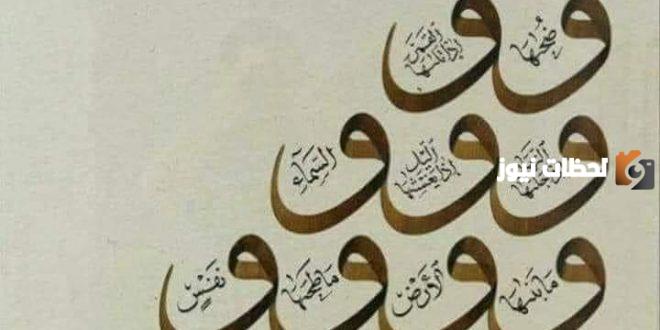 وَضُحَىٰهَا وَٱلْقَمَرِ إِذَا تَلَىٰهَا
وَٱلنَّهَارِ جَلَّىٰهَا وَٱلَّيْلِ إِذَا يَغْشَىٰهَا وَٱلسَّمَآءِ
وَمَا بَنَىٰهَا وَٱلْأَرْضِ وَمَا طَحَىٰهَا وَنَفْسٍ
لحظات نيوز